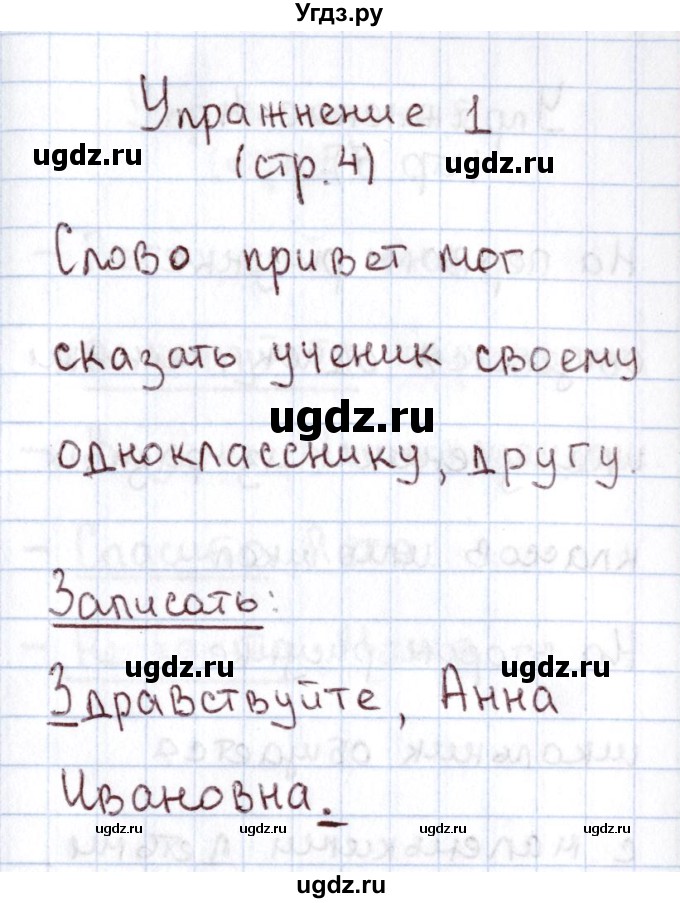 Угдз.ру
Упражнение 1
ugdz.ru
ugdz.ru
(стр. 4)
Слово привет мог
сказать ученик своему
ugdz.ru
однокласснику, другу.
Записать:
ugdz.ru
ugdz.ru
Здравствуйте, Анна
Ивановна.
ugdz.ru
ugdz.ru
ugdz.ru
ugdz.ru